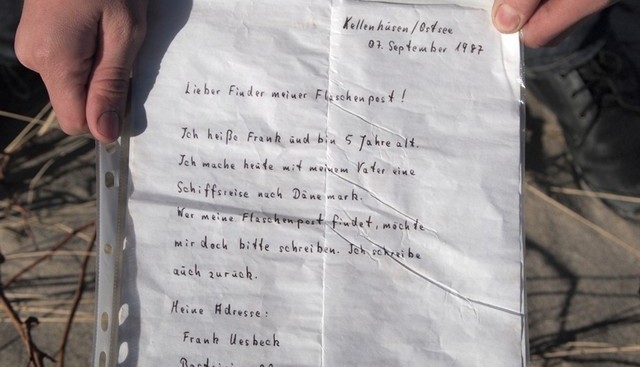 Kellenhüsen/Ostsee
07. September 1987
Lieber Finder meiner Flaschenpost!
Ich heiße Frank ünd bin 5 Jahre alt.
Ich mache heüte mit meinem Vater eine
Schiffsreise nach Dänemark.
Wer meine Flaschenpost findet, möchte
mir doch bitte schreiben. Ich schreibe
aüch zurück.
Meine Adresse:
Frank Uesbeck